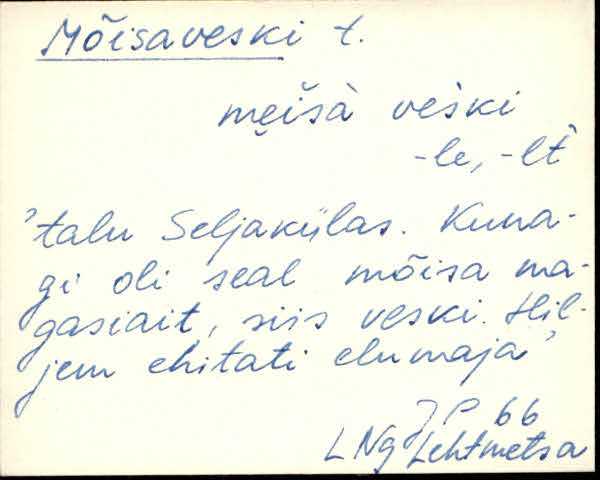 Mõisaveski t.
me̮i̬šà veški
-le, -lt̀
'talu Seljakülas. Kuna-
gi oli seal mõisa ma-
gasiait, siis veski. Hil-
jem ehitati elumaja'
J P 66
LNg Lehtmetsa